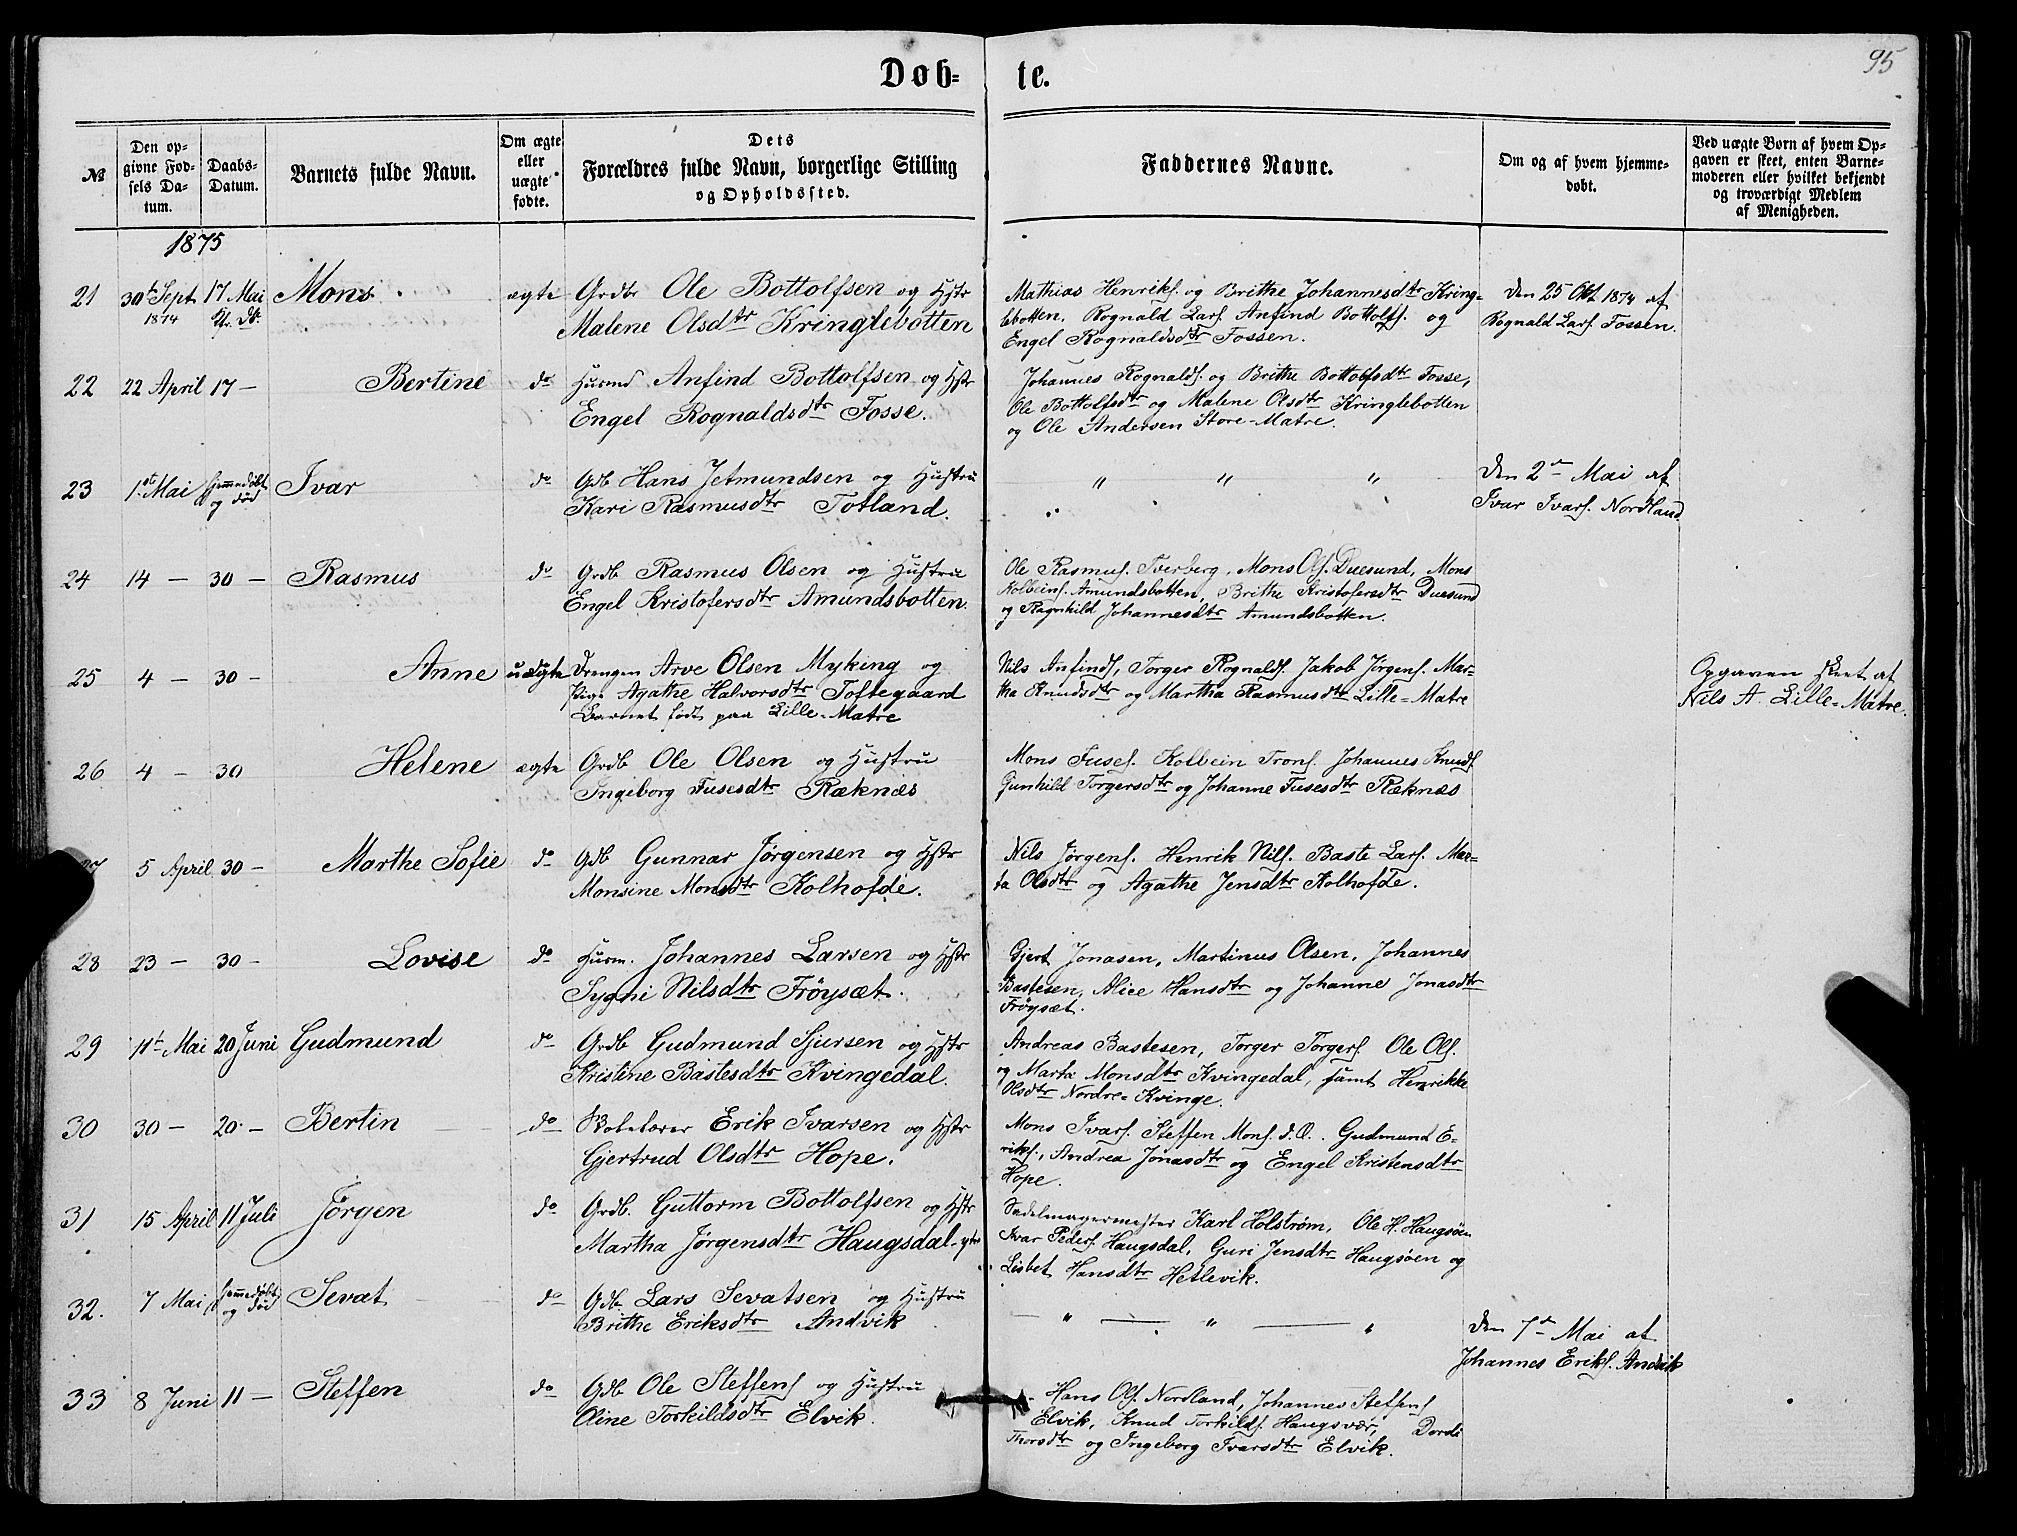 95
Døb-te.
№
Den op-
givne Fød-
sels Da-
tum.
Daabs-
Datum.
Barnets fulde Navn.
Om ægte
eller
uægte
fødte.
Dets
Forældres fulde Navn, borgerlige Stilling
og Opholdssted.
Faddernes Navne.
Om og af hvem hjemme-
døbt.
Ved uægte Børn af hvem Op-
gaven er skeet, enten Barne-
moderen eller hvilket bekjendt
og troværdigt Medlem
af Menigheden.
1875
21 30t Sept 17 Mai Mons ægte Grdbr Ole Bottolfsen og Hstr
1874 Kr. Dk.
Malene Olsdtr Kringlebotten
Mathias Henriks. og Brithe Johannesdtr Kring-
lebotten, Rognald Lars. Anfind Bottolfs. og
Engel Rognaldsdtr Fossen.
Den 25 Okt 1874 af
Rognald Lars. Fossen.
22 22 April 17 — Bertine do Husmd Anfind Bottolfsen og Hstr
Engel Rognaldsdtr Fosse.
Johannes Rognalds. og Brithe Bottolfsdtr Fosse,
Ole Bottolfsdtr og Malene Olsdtr Kringlebotten
og Ole Andersen Store-Matre.
23 1st Mai Hjemmedøbt og død Ivar do Gdb Hans Jetmundsen og Hustru
Kari Rasmusdtr Totland.
" " "
Den 2den Mai af
Ivar Ivars. Nordland
24 14 — 30 — Rasmus do Grdb Rasmus Olsen og Hustru
Engel Kristofersdtr Amundsbotten.
Ole Rasmus. Tverberg, Mons Ols. Duesund, Mons
Kolbeins. Amundsbotten, Brithe Kristofersdtr Duesund
og Ragnhild Johannesdtr Amundsbotten.
25 4 — 30 — Anne uægte Drengen Arve Olsen Myking og
Pige Agathe Halvorsdtr Toftegaard
Barnet født paa Lille-Matre
Nils Anfinds, Torger Rognalds. Jakob Jørgens. Mar-
tha Knudsdtr og Martha Rasmusdtr Lille-Matre
Opgaven skeet af
Nils A. Lille-Matre.
26 4 — 30 Helene ægte Grdb Ole Olsen og Hustru
Ingeborg Fusesdtr Ræknæs
Mons Fuses. Kolbein Trons. Johannes Knuds
Gunhild Torgersdtr og Johanne Fusesdtr Ræknæs
27 5 April 30 — Marthe Sofie do Gdb Gunnar Jørgensen og Hstr
Monsine Monsdtr Kolhofde.
Nils Jørgens. Henrik Nils. Baste Lars. Mar-
ta Olsdtr og Agathe Jensdtr Kolhofde.
28 23 — 30 — Lovise do Husm. Johannes Larsen og Hstr
Sygni Nilsdtr Frøysæt.
Gjert Jonasen, Martinus Olsen, Johannes
Bastesen, Alice Hansdtr og Johanne Jonasdtr
Frøysæt.
29 11t Mai 20 Juni Gudmund do Grdb Gudmund Sjursen og Hstr
Kristine Bastesdtr Kvingedal.
Andreas Bastesen, Torger Torgers. Ole Ols.
og Marta Monsdtr Kvingedal, samt Henrikke
Olsdtr Nordre-Kvinge.
30 30 — 20 — Bertin do Skolelærer Erik Ivarsen og Hstr
Gjertrud Olsdtr Hope.
Mons Ivars. Steffen Mons. d.Æ. Gudmund E-
riks., Andrea Jonasdtr og Engel Kristensdtr
Hope.
31 15 April 11 Juli Jørgen do Grdb. Guttorm Bottolfsen og Hstr
Martha Jørgensdtr Haugsdal ytre
Sadelmagermester Karl Holstrøm, Ole H. Haugsøen
Ivar Peders. Haugsdal, Guri Jensdtr Haugsøen og
Lisbet Hansdtr Hetlevik.
32. 7 Mai Hjemmedøbt og død Sevat do Gdb. Lars Sevatsen og Hustru
Brithe Eriksdtr Andvik
— " — " — "
Den 7de Mai af
Johannes Eriks. Andvik
33 8 Juni 11 — Steffen do Gdb Ole Steffens og Hustru
Oline Torkildsdtr Elvik.
Hans Ols. Nordland, Johannes Steffens
Elvik, Knud Torkilds. Haugsvær, Dordi
Thorsdtr og Ingeborg Ivarsdtr Elvik.